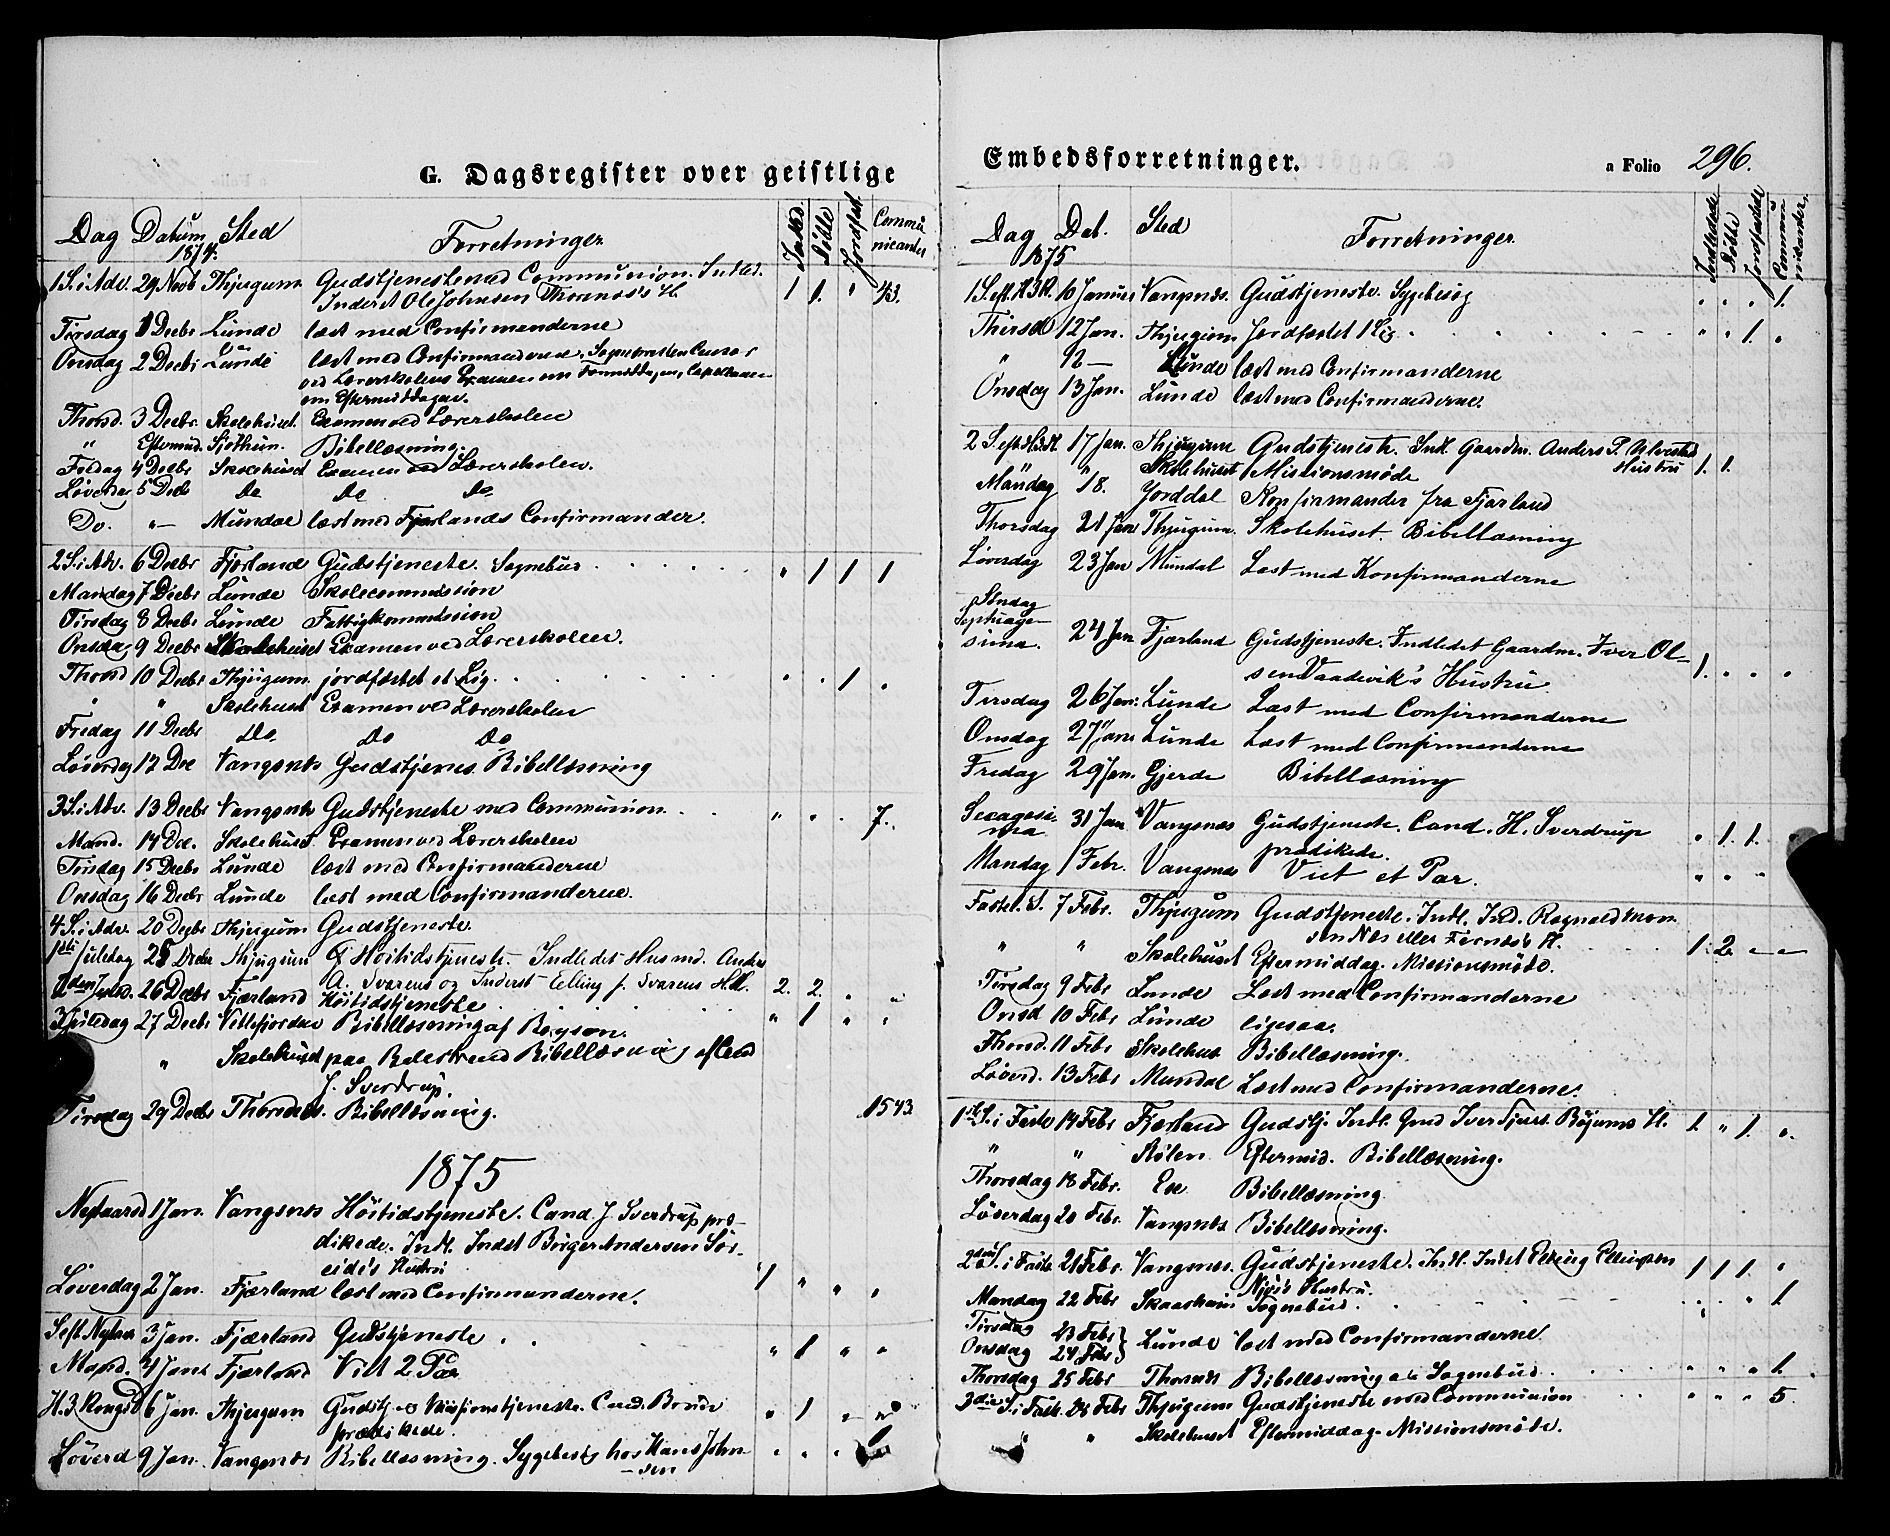 G. Dagsregister over geistlige
Dag Datum Sted Forretninger Indled. Døbte Jordfæst. Communicanter
1874.
1 S. i Adv. 29 Novb Thjugum Gudstjeneste med Communion. Indled. 1 1. " 43.
Inderst Ole Johnsen Thorsnæs's H.
Tirsdag 1 Decbr Lunde læst med Confirmanderne
Onsdag 2 Decbr Lunde læst med Confirmanderne. Sognepresten Censor
ved Lærerskolens Examen om Formiddagen, Capellanen
om Eftermiddagen.
Thorsd. 3 Decbr Skolehuset Examen ved Lærerskolen
" Eftermid. Sjøthun. Bibellæsning.
Fredag 4 Decbr Skolehuset Examen ved Lærerskolen.
Løverda 5 Decb Do Do Do
Do. "— Mundal læst med Fjærlands Confirmander.
2 S. i Adv. 6 Decbr Fjærland Gudstjeneste. Sognebud " 1 1 1
Mandag 7 Decbr Lunde Skolecommission
Tirsdag 8 Decbr Lunde Fattigkommission
Onsdag 9 Decbr Skolehuset Examen ved Lærerskolen.
Thorsd 10 Decbr Thjugum jordfæstet et Lig. " " 1 "
" " Skolehuset Examen ved Lærerskolen
Fredag 11 Decbr Do Do Do
Løverdag 12 Dec Vangsnæs Gudstjenes. Bibellæsning
3 S. i Adv. 13 Decbr Vangsnæs Gudstjeneste med Communion " " . 7.
Mand. 14 Dec. Skolehuset Examen ved Lærerskolen
Tirsdag 15 Decbr Lunde læst med Confirmanderne
Onsdag 16 Decbr Lunde læst med Confirmanderne.
4 S. i Adv. 20 Decbr Thjugum Gudstjeneste.
1ste Juledag 25 Decbr Thjugum Høitidstjeneste – Indledet Husmd. Anders
A. Svaren og Inderst Elling J. Svarens H. 2. 2. " "
2den Juled. 26 Decbr Fjærland Høitidstjeneste " 1 " "
3 Juledag 27 Decbr Vetlefjorden Bibellæsning af
" Skolehuset paa Balestrand Bibellæsning af Cand
J. Sverdrup.
Tirsdag 29 Decbr Thorsnæs. Bibellæsning. 1543.
1875
Nytaarsd 1 Jan. Vangsnæs Høitidstjeneste. Cand. J. Sverdrup præ-
dikede. Indl. Indst Børge Andersen Sør-
eide's Hustru 1 " " "
Løverdag 2 Jan. Fjærland læst med Confirmanderne.
S. eft. Nytaar 3 Jan. Fjærland Gudstjeneste " 1 " "
Mand. 4 Jan. Fjærland Vied 2 Par
H. 3 Kongsd 6 Jan. Thjugum Gudstj. og Missionstjeneste. Cand.
prædikede. " 1 " "
Løverd 9 Jan. Vangsnæs Bibellæsning. Sygebesøg hos Hans John-
sen " " " 1
Embedsforretninger. a Folio 296.
Dag Dat. Sted Forretninger. Indledede Døbte Jordfæstede Communicanter.
1875
1 S. eft. H3K. 10 Januar Vangsnæs. Gudstjeneste. Sygebesøg " " " 1.
Thirsd 12 Jan. Thjugum Jordfæstet 1 Lig " " 1. "
" 12 — Lunde læst med Confirmanderne
Onsdag 13 Jan. Lunde læst med Confirmanderne.
2 S. eft. H3K. 17 Jan. Thjugum Gudstjeneste. Indl. Gaardm. Anders P. Ulvestad
" Skolehuset Missionsmøde Hustru 1. 1.
Mandag 18. Jorddal Konfirmander fra Fjærland
Thorsdag 21 Jan Thjugum. Skolehuset. Bibellæsning
Løverdag 23 Jan Mundal Læst med Konfirmanderne
Søndag
Septuage-
sima. 24 Jan Fjærland Gudstjeneste. Indledet Gaardm. Iver Ol-
sen Vaadevik's Hustru 1. " " "
Tirsdag 26 Jan: Lunde Læst med Confirmanderne
Onsdag 27 Jan Lunde Læst med Confirmanderne
Fredag 29 Jan. Gjerde Bibellæsning
Sexagesi-
ma 31 Jan Vangsnæs Gudstjeneste. Cand. H. Sverdrup
prædikede. " 1. 1.
Mandag 1 Febr. Vangsnæs Viet et Par. " " "
Fastel. S. 7 Febr. Thjugum Gudstjeneste. Indl. Ind. Ragnvald Mon-
sen Næs eller Fernæs's H. 1. 2. " "
" " Skolehuset Eftermiddag. Missionsmøde.
Tirsdag 9 Febr. Lunde Læst med Confirmanderne
Onsd 10 Febr Lunde ligesaa.
Thorsd. 11 Febr Skolehus Bibellæsning.
Løverd. 13 Febr Mundal Læst med Confirmanderne.
1ste S. i Faste 14 Febr Fjærland Gudstj. Indl. Gmd Iver Bøjums H. 1. " 1. "
" " Eftermid. Bibellæsning.
Thorsdag 18 Febr. Ese Bibellæsning
Løverdag 20 Febr. Vangsnæs Bibellæsning.
2den S. i Faste 21 Febr. Vangsnæs. Gudstjeneste. Indl. Indst Ellingsen
Hustru. 1 1 1. "
Mandag 22 Febr Sognebud. " . " 1.
Tirsdag 23 Febr } Lunde læst med Confirmanderne
Onsdag 24 Febr
Thorsdag 25 Febr Thorsnæs Bibellæsning Sognebud " " " 1.
3die S. i Faste 28 Febr Thjugum Gudstjeneste med Communion " " " 5.
" " Skolehuset Eftermiddag – Missionsmøde.